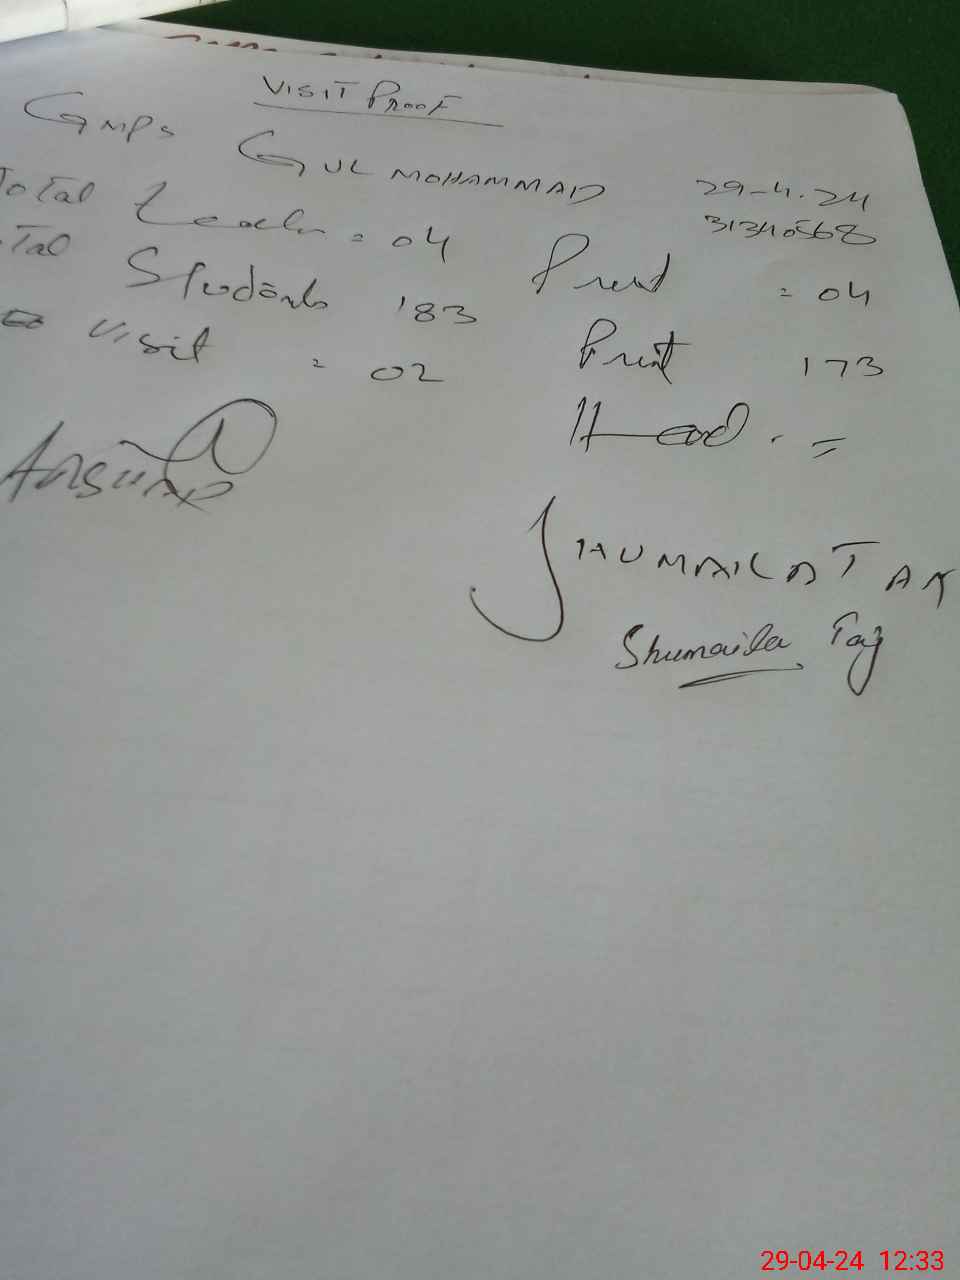 VISIT PROOF
GMPS GUL MOHAMMAD 29-4.24
31340568
Total Teach = 04 Present = 04
Tal Students 183 Present 173
Visit = 02 Head . =
SHUMAILA TAJ
Shumaila Taj
29-04-24 12:33